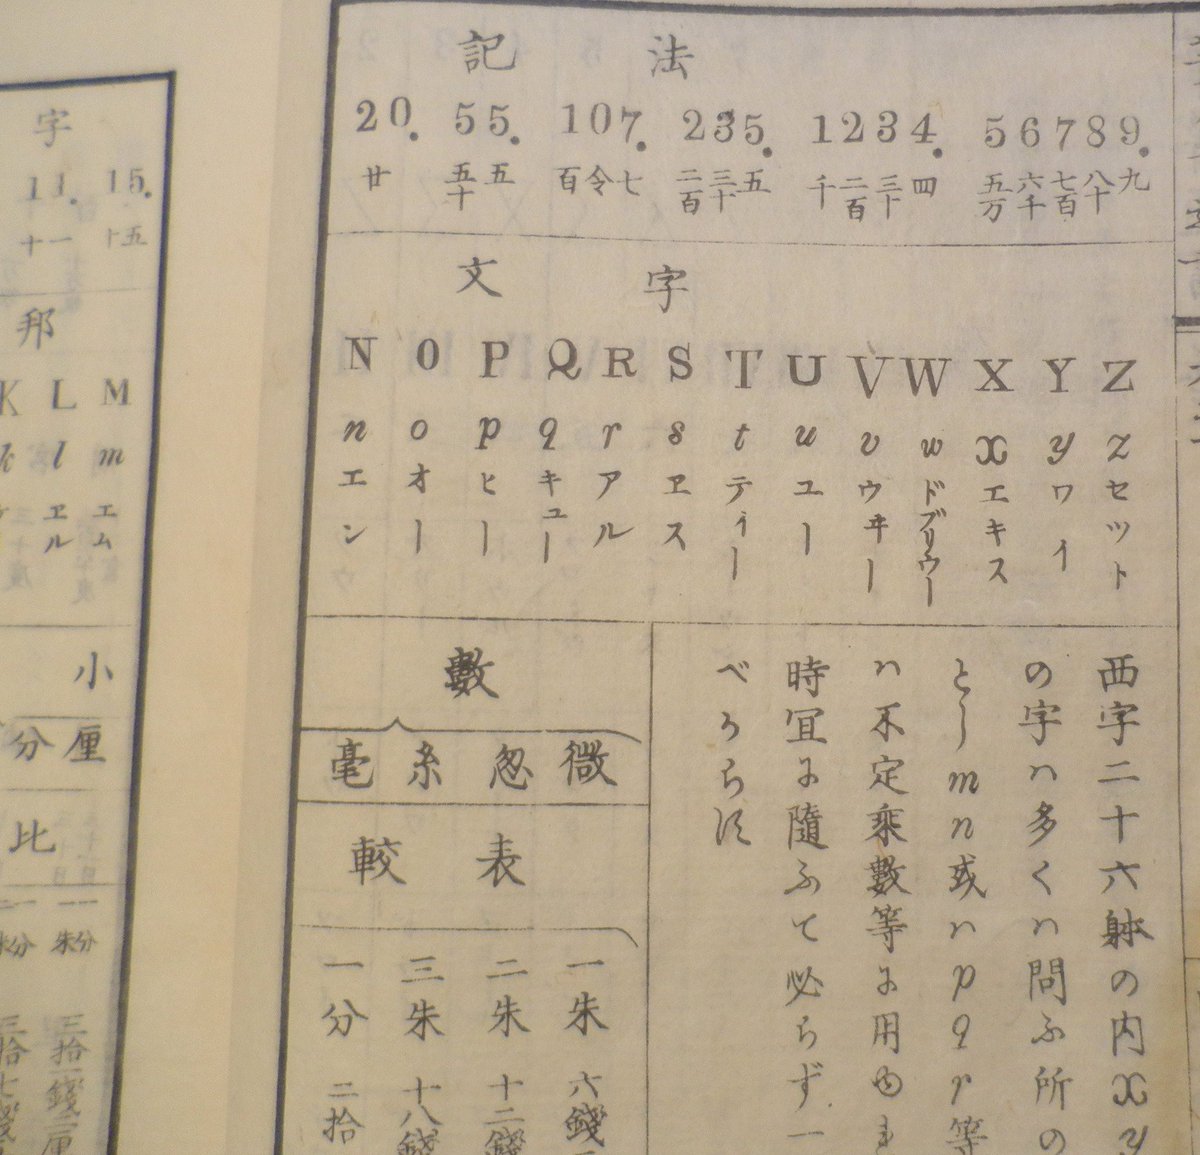 記法
20. 55. 107. 235. 1234. 56789.
廿 五十五 百令七 二百三十五 千二百三十四 五万六千七百八十九
文字
N O P Q R S T U V W X Y Z
n o p q r s t u v w x y z
エン オー ヒー キュー アル ヱス ティー ユー ウヰー ドブリウー エキス ワイ セツト
西字二十六躰の内x y
の字ハ多くハ問ふ所の
とし m n 或ハ p q r 等
ハ不定乘數等に用ゆ
時宜に隨ふて必らず一
べからず
數
毫 糸 忽 微
較表
一朱 六錢
二朱 十二錢
三朱 十八錢
一分 二拾
字
11. 15.
十一 十五
邦
K L M
k l m
ヱル エム
小
分 厘
比